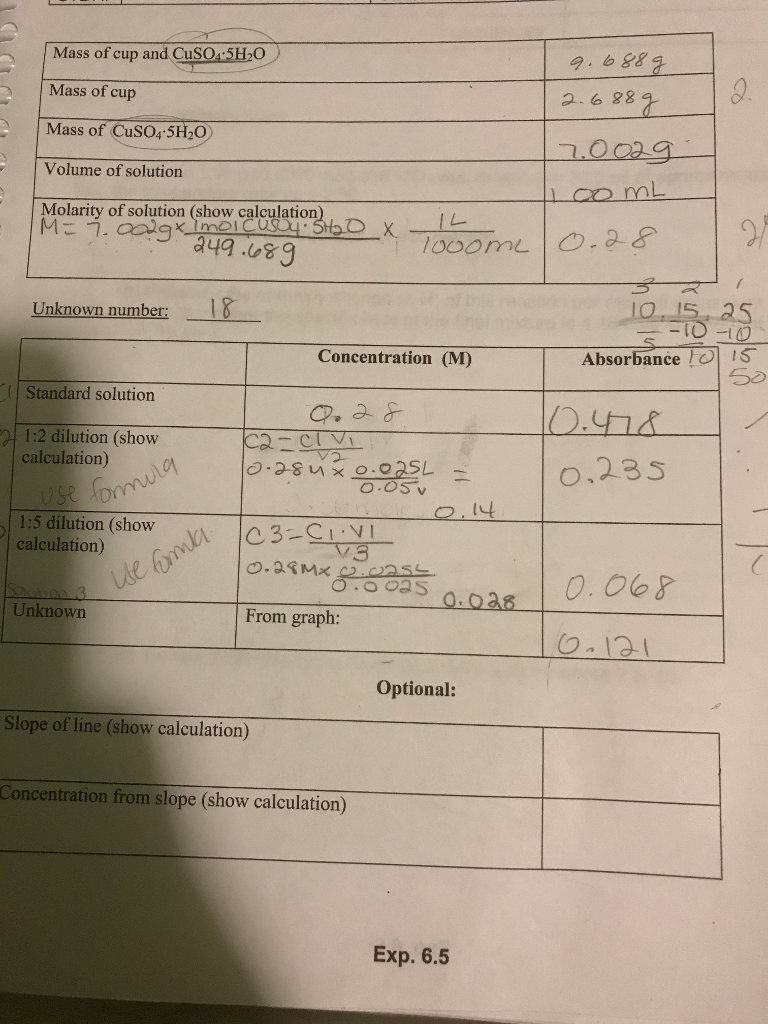 Mass of cup and CuSO₄·5H₂O
9.688g
Mass of cup
2.688g
2.
Mass of CuSO₄·5H₂O
7.002g
Volume of solution
100 mL
Molarity of solution (show calculation)
M = 7.002g × 1mol CuSO4·5H2O / 249.68g × 1L / 1000mL
0.28
Unknown number: 18
3 2 1
10, 15, 25
-10 -10
5 10 15
50
Concentration (M)
Absorbance
Standard solution
0.28
0.478
1:2 dilution (show
calculation)
use formula
C2 = C1V1 / V2
0.28M × 0.025L / 0.05 =
0.14
0.235
1:5 dilution (show
calculation)
use formula
Solution 3
C3 = C1·V1 / V3
0.28M× 0.025L / 0.0025
0.028
0.068
Unknown
From graph:
0.121
Optional:
Slope of line (show calculation)
Concentration from slope (show calculation)
Exp. 6.5